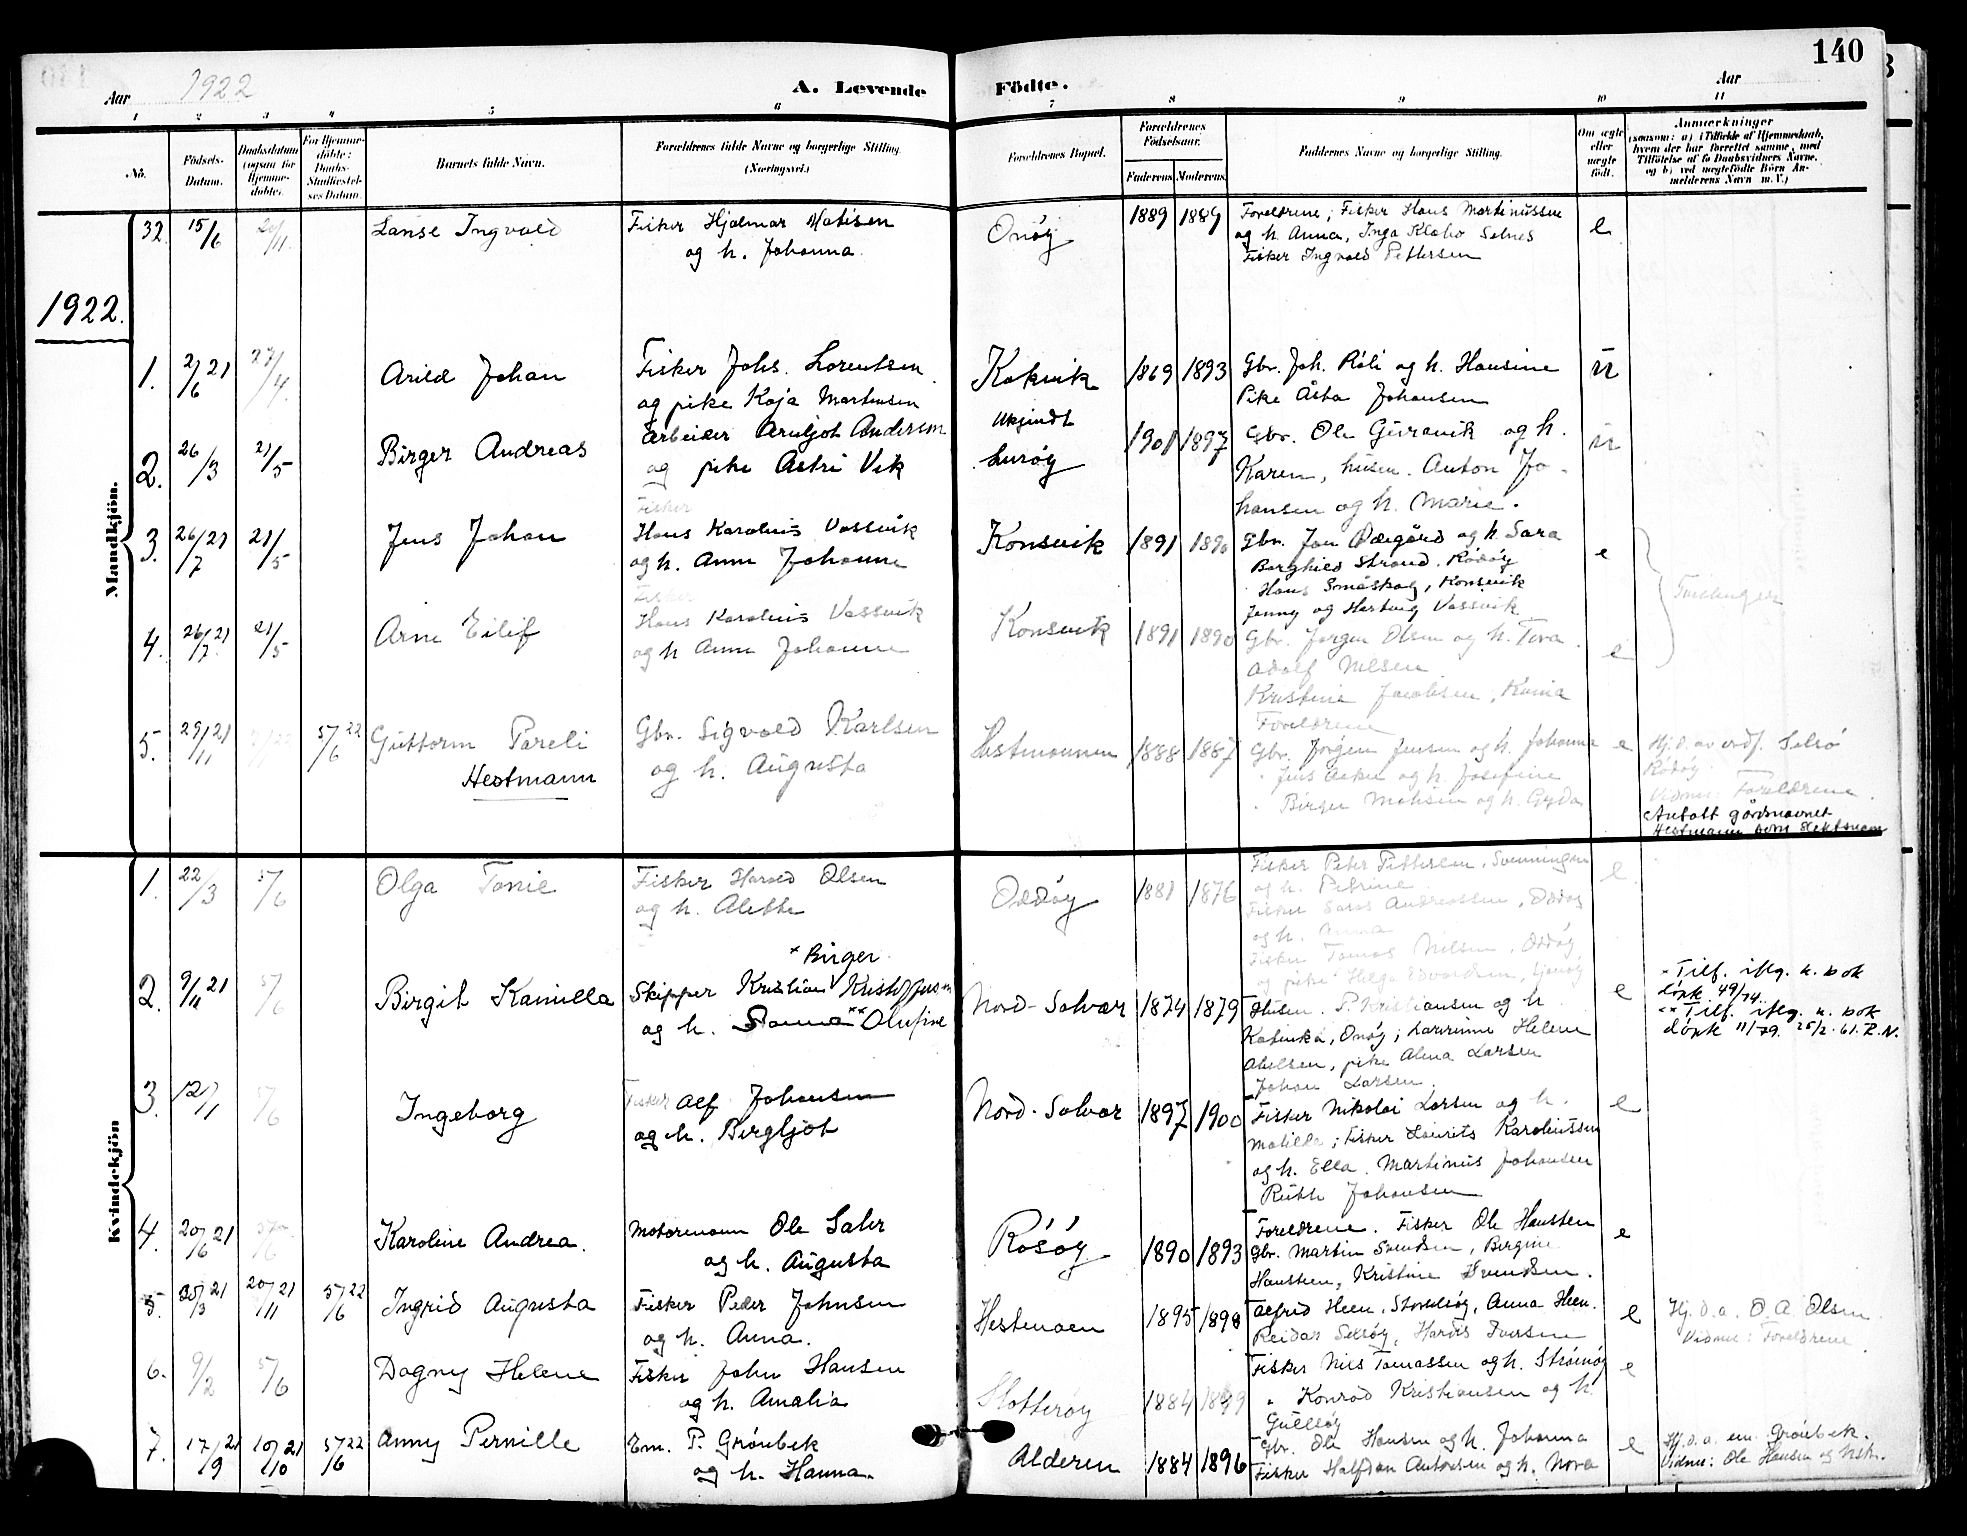 140
Aar 1922
A. Levende Födte.
Aar
1 2 3 4 5 6 7 8 9 10 11
No.
Födsels-Datum.
Daabsdatum (ogsaa for Hjemmedöbte).
For Hjemmedöbte: Daabs-Stadfæstelses Datum.
Barnets fulde Navn.
Forældrenes fulde Navne og borgerlige Stilling (Næringsvei.)
Forældrenes Bopæl.
Forældrenes Födselsaar.
Faderens. Moderens.
Faddernes Navne og borgerlige Stilling.
Om ægte eller uægte födt.
Anmærkninger
(saasom: a) i Tilfælde af Hjemmedaab, hvem der har forrettet samme, med Tilföielse af to Daabsvidners Navne, og b) ved uægtefödte Börn Anmelderens Navn m. V.)
Mandkjön.
32. 15/6 20/11. Ingvald
Fisker Hjalmar Matisen
og h. Johanna
Onöy 1889 1889
Foreldrene; Fisker Hans Martinussen
og h. Anna, Inga Selnes
Fisker Ingvald Pettersen
e
1922.
1. 2/6 21 27/4. Arild Johan
Fisker Johs. Lorentsen
og pike Kaja Martinsen
Kokvik 1869 1893
Gbr. Joh. Röli og h. Hansine
Pike Åsta Johansen
u
2. 26/3 21/5 Birger Andreas
Arbeider Arnljot Andersen
og pike Astri Vik
Ukjendt
Luröy
1901 1897
Gbr. Ole og h.
Karen, husm. Anton Jo-
hansen og h. Marie.
u
3. 26/7 21 21/5 Jens Johan
Fisker
Hans Karolius Vassvik
og h. Anna Johanne
Konsvik 1891 1890
Gbr. Jon Ödegård og h Sara
Borghild Strand. Rödöy
Hans Småskog, Konsvik
Jenny og Hartvig Vassvik
e
Tvillinger
4. 26/7 21 21/5 Arne Eilif
Fisker
Hans Karolius Vassvik
og h Anna Johanne
Konsvik 1891 1890
Gbr. Jörgen Olsen og h. Tora.
Adolf Nilsen
Kristine Jacobsen,
Foreldrene
e
5. 29/11 21 5/6 22 Guttorm Pareli
Hestmann
Gbr. Sigvald Karlsen
og h. Augusta
Hestmannen 1888 1887
Gbr. Jörgen Jensen og h. Johanna
" Jens og h. Josefine
" Birger Matisen og h. Gyda
e
Hj. d. av Selsö
Rödöy
Vidner: Foreldrene.
Antatt gårdsnavnet
Hestmann som slektsnavn
Kvindekjön
1. 22/3 5/6 Olga Tonie
Fisker Harald Olsen
og h. Alette
Oddöy 1881 1876
Fisker Peter Pettersen, Svenningen
og h. Petrine
Fisker Andreassen, Oddöy
og h. Anna
Fisker Tomas Nilsen, Oddöy
og pike Helga Edvardsen,
e
2. 9/11 21 5/6 Birgit Kamilla
× Birger
Skipper Kristian Kristoffersen
og h. ×× Olufine
Nord-Solvær 1874 1879
Husm. P. Kristiansen og h
Katinka, Onöy; Helene
, pike Alma Larsen
Johan Larsen.
e
× Tilf. iflg. n. bok
löpk. 49/74.
×× Tilf. iflg. n. bok
löpk 11/79. 25/2-61. R.N.
3. 12/11 5/6 Ingeborg
Fisker Alf Johansen
og h. Bergljot
Nord-Solvær 1897 1900
Fisker Nikolai Larsen og h.
Matilde; Fisker Laurits Karoliussen
og h. Ella. Martinus Johansen
Ruth Johansen
e
4. 20/6 21 5/6 Karoline Andrea.
Motormann Ole
og h. Augusta
Rösöy 1890 1893
Foreldrene. Fisker Ole Hansten
Gbr. Martin Svendsen, Bergine
Hansteen, Kristine Svendsen.
e
5. 25/3 21 20/11 21 5/6 22 Ingrid Augusta
Fisker Peder Johnsen
og h. Anna.
Hestmoen 1895 1898
Alfred Heen, Storselsöy, Anna Heen.
Reidar Selsöy, Iversen
e
Hj. d. a. O A Olsen.
Vidner: Foreldrene
6. 9/2 5/6 Dagny Helene
Fisker John Hansen
og h. Amalia
Slotteröy 1884 1889
Fisker Nils Tomassen og h. Strömöy
" Konrad Kristiansen og h
Gullsöy
e
7. 17/9 21 10/10 21 5/6 22 Anny Pernille
Em. P. Grönbek
og h. Hanna.
Alderen 1884 1896
Gbr. Ole Hansen og h. Johanna
Fisker Halfdan Antonsen og h. Nora
e
Hj. d. a. em. Grönbek.
Vidner: Ole Hansen og hstr.